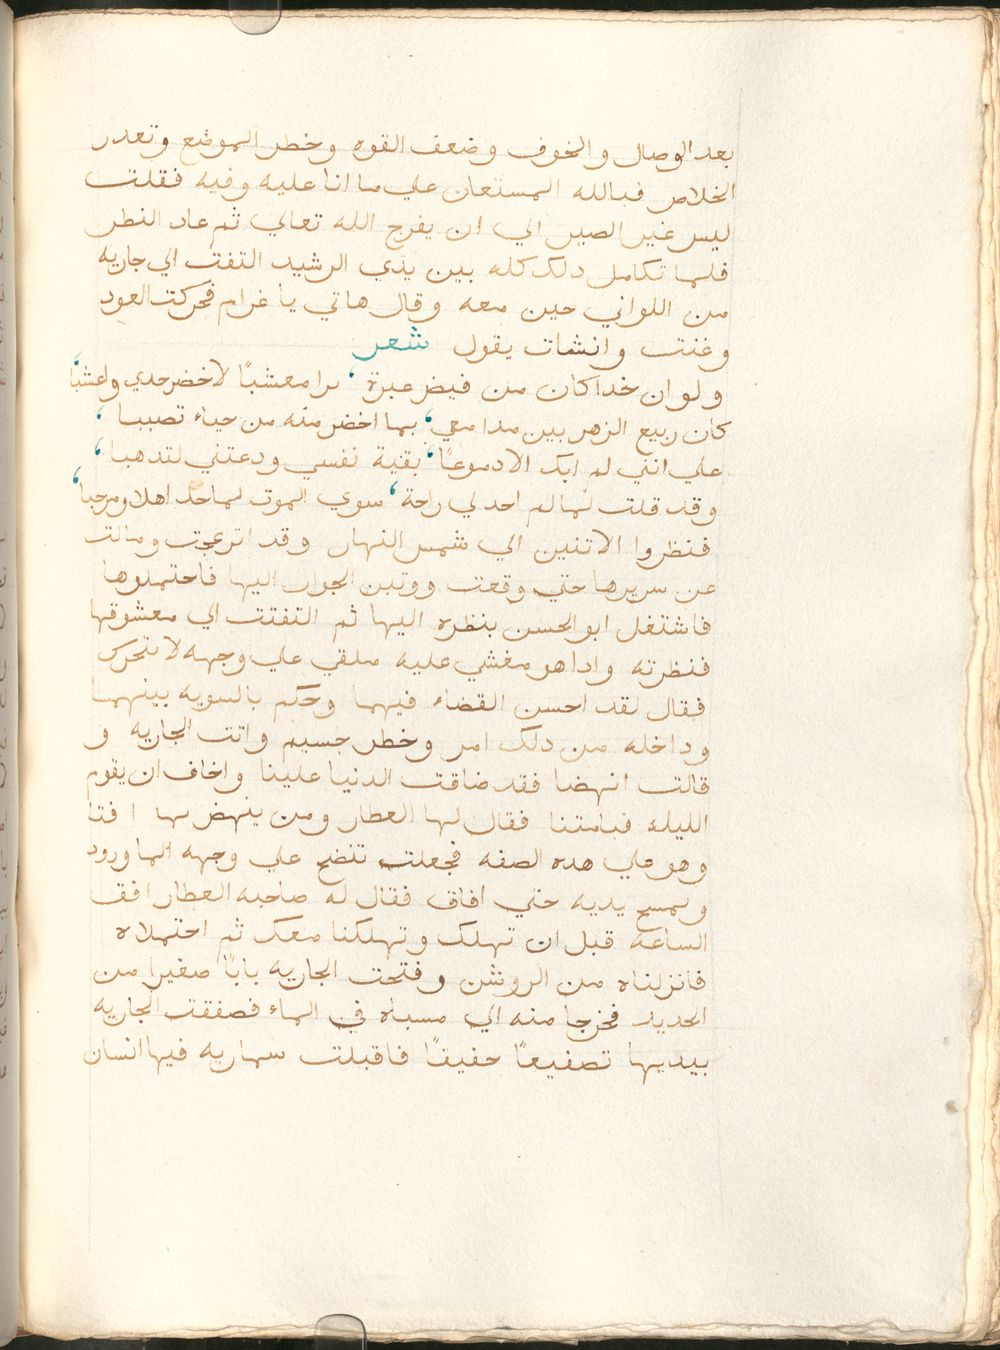 بعد الوصال والخوف وضعف القوه وخطر الموضع وتعدر
الخلاص فبالله المستعان علي ما انا عليه وفيه فقلت
ليس غير الصبر الي ان يفرج الله تعالي ثم عاد النطر
فلما تكامل دلك كله بين يدي الرشيد التفت الي جاريه
من اللواتي حين معه وقال هاتي يا غرام فحركت العود
وغنت وانشات يقول شعر
ولو ان خدا كان من فيض عبرة ، يرا معشبًا لاخضر خدي واعشبا
كان ربيع الزهر بين مدامعي ، بها اخضر منه من حياء تصببا ،
علي انني لم ابك الا دموعًا ، بقية نفسي ودعتني لتدهبا ،
وقد قلت لما لم احد لي راحة ، سوي الموت لما حل اهلا ومرحبا ،
فنظروا الاتنين الي شمس النهار وقد انزعجت ومالت
عن سريرها حتي وقعت ووتبن الجوار اليها فاحتملوها
فاشتغل ابو الحسن بنظره اليها ثم التفتت الي معشوقها
فنظرته وادا هو مغشي عليه ملقي علي وجهه لا يتحرك
فقال لقد احسن القضاء فيهما وحكم بالسويه بينهما
وداخله من دلك امر وخطر جسيم واتت الجاريه و
قالت انهضا فقد ضاقت الدنيا علينا واخاف ان يقوم
الليله قيامتنا فقال لها العطار ومن ينهض بهدا الفتا
وهو علي هده الصفه فجعلت تنضح علي وجهه الماورد
وتمسح يديه حتي افاق فقال له صاحبه العطار افق
الساعة قبل ان تهلك وتهلكنا معك ثم احتملاه
فانزلناه من الروشن وفتحت الجاريه بابًا صغيرا من
الحديد فخرجا منه الي مسناه في الماء فصفقت الجاريه
بيديها تصفيقًا خفيفًا فاقبلت سماريه فيها انسان